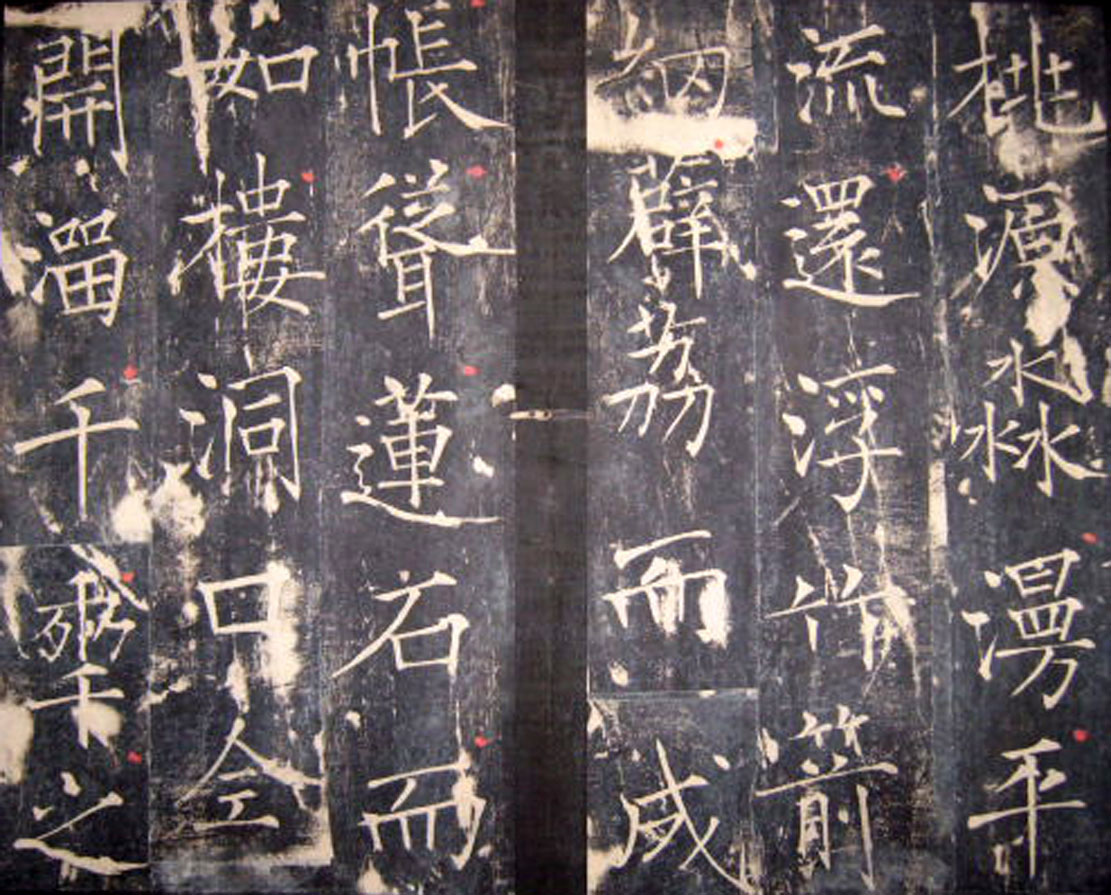 桃源淼漫平
流還浮竹箭
紉薜荔而成
帳聳蓮石而
如樓洞口全
開溜千𠡦之